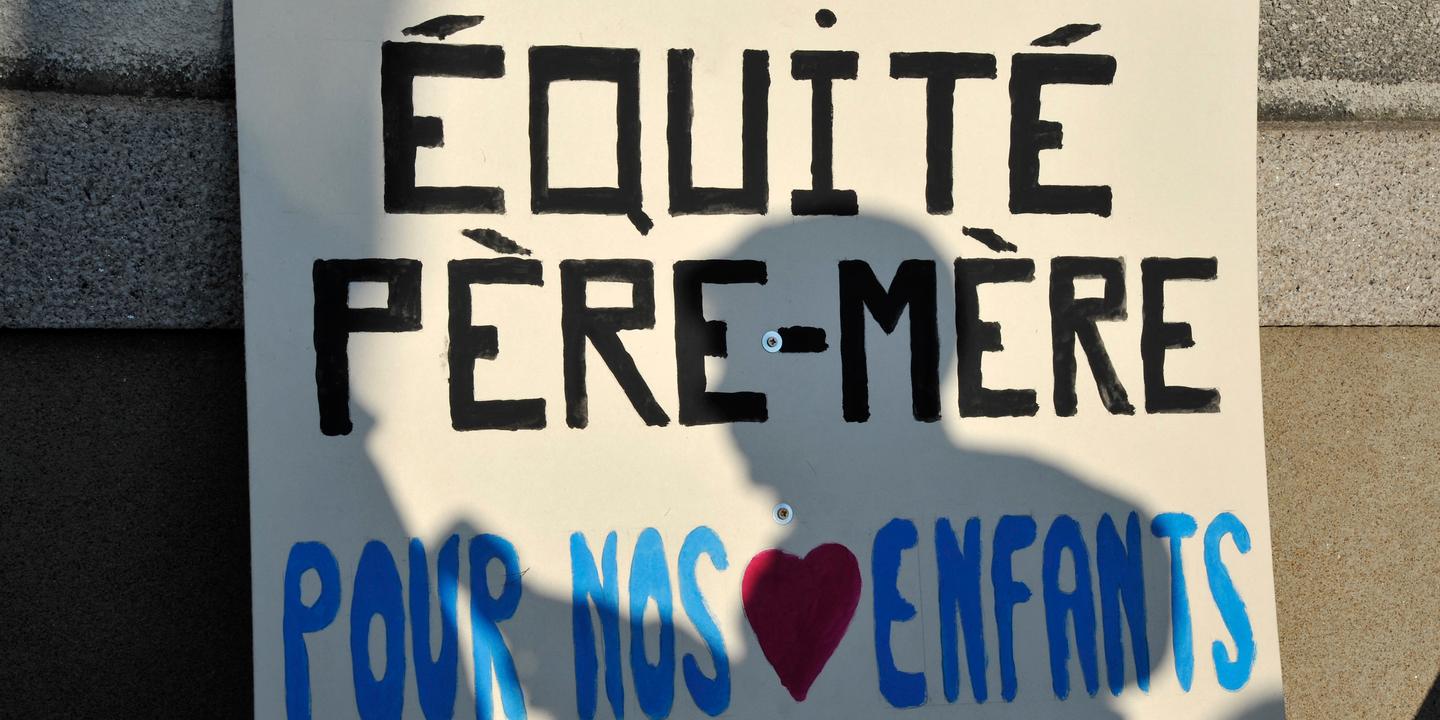 ÉQUITÉ
PÈRE-MÈRE
POUR NOS ENFANTS